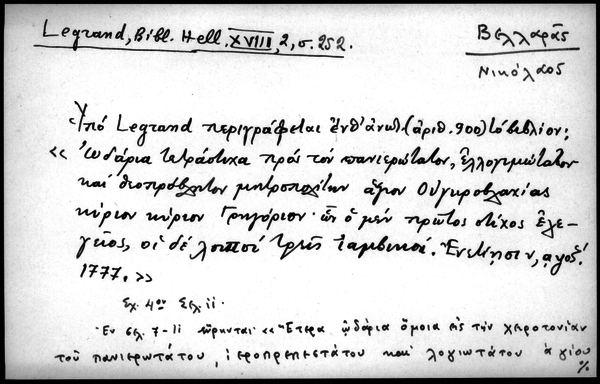 Legrand, Bibl. Hell. XVIII, 2, σ. 252.
Βελλαρᾶς
Νικόλαος
Ὑπό Legrand περιγράφεται ἐνθ' ἀνωτ. (ἀριθ. 900) τό βιβλίον:
« Ὠδάρια τετράστιχα πρός τόν πανιερώτατον, ἐλλογιμώτατον
καί θεοπρόβλητον μητροπολίτην ἅγιον Οὑγκροβλαχίας
κύριον κύριον Γρηγόριον· ὧν ὁ μέν πρῶτος στίχος ἐλε-
γεῖος, οἱ δέ λοιποί τρεῖς ἰαμβικοί. Ἐνετίησιν, ͵αψοζ΄.
1777. »
Σχ. 4ον Σελ. 11.
Ἐν σελ. 7-11 εὕρηνται « Ἕτερα ὠδάρια ὅμοια εἰς τήν χειροτονίαν
τοῦ πανιερωτάτου, ἱεροπρεπεστάτου καί λογιωτάτου ἁγίου
%